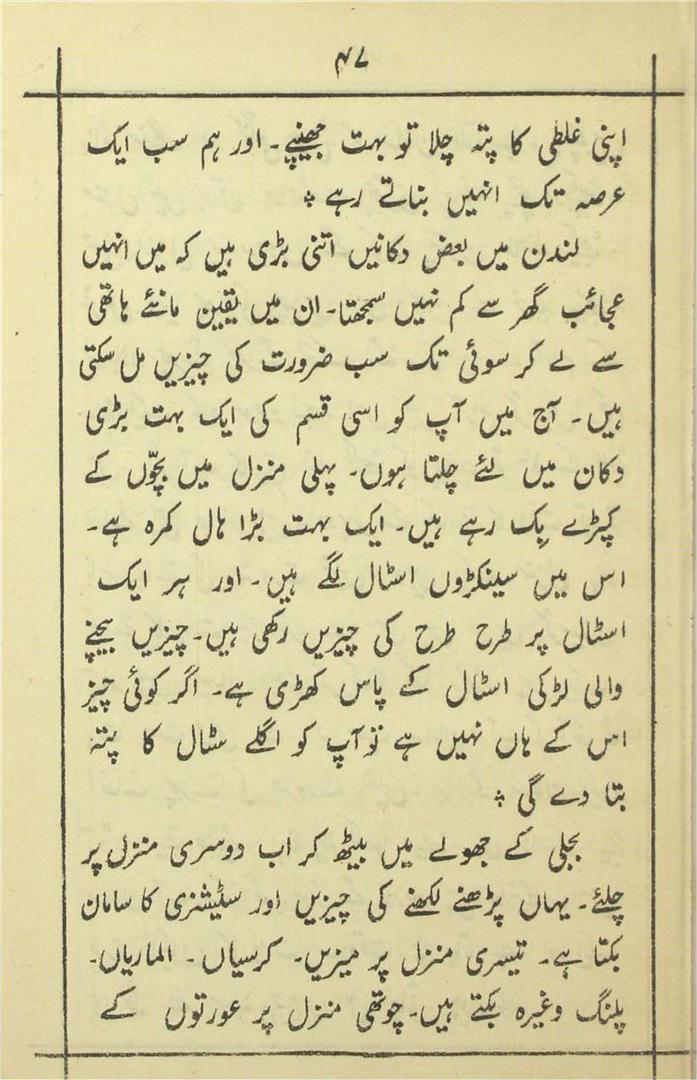 ۴۷
اپنی غلطی کا پتہ چلا تو بہت جھینپے۔ اور ہم سب ایک
عرصہ تک انہیں بناتے رہے ؞
لندن میں بعض دکانیں اتنی بڑی ہیں کہ میں انہیں
عجائب گھر سے کم نہیں سمجھتا۔ ان میں یقین مانئے ہاتھی
سے لے کر سوئی تک سب ضرورت کی چیزیں مل سکتی
ہیں۔ آج میں آپ کو اسی قسم کی ایک بہت بڑی
دکان میں لئے چلتا ہوں۔ پہلی منزل میں بچّوں کے
کپڑے بِک رہے ہیں۔ ایک بہت بڑا ہال کمرہ ہے۔
اس میں سینکڑوں اسٹال لگے ہیں۔ اور ہر ایک
اسٹال پر طرح طرح کی چیزیں رکھی ہیں۔ چیزیں بیچنے
والی لڑکی اسٹال کے پاس کھڑی ہے۔ اگر کوئی چیز
اس کے ہاں نہیں ہے تو آپ کو اگلے سٹال کا پتہ
بتا دے گی ؞
بجلی کے جھولے میں بیٹھ کر اب دوسری منزل پر
چلئے۔ یہاں پڑھنے لکھنے کی چیزیں اور سٹیشنری کا سامان
بکتا ہے۔ تیسری منزل پر میزیں۔ کرسیاں۔ الماریاں۔
پلنگ وغیرہ بکتے ہیں۔ چوتھی منزل پر عورتوں کے